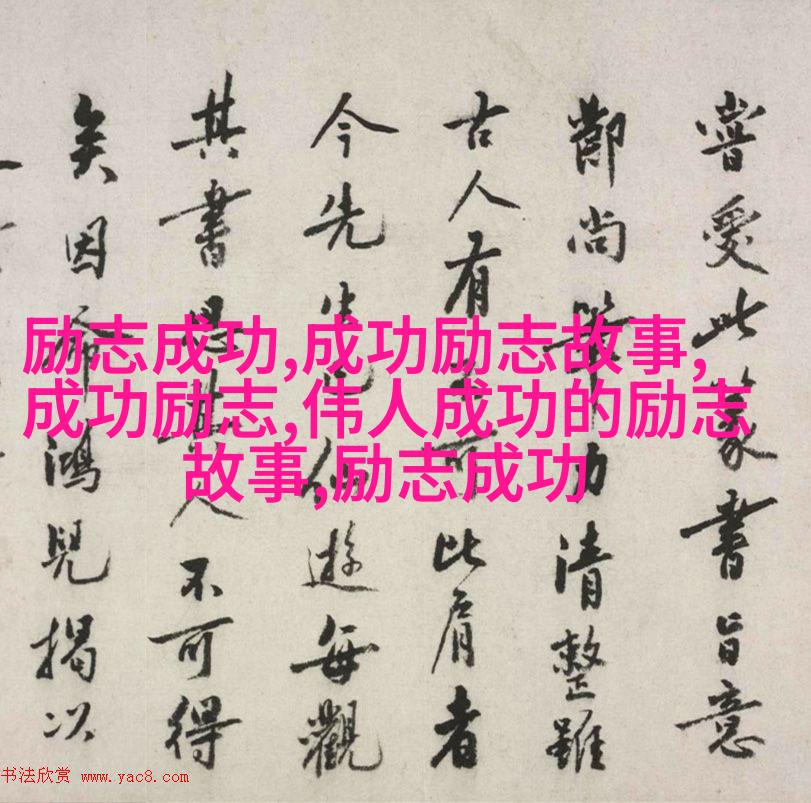 励志成功,成功励志故事,
成功励志,伟人成功的励志
故事,励志成功
嘗愛此篆書旨意
尚筆力清整雖
古人有可比肩者
今先生已仙遊每觀
其書思其人不可得
矣因希鴻兒揭以
书法欣赏 www.yac8.com